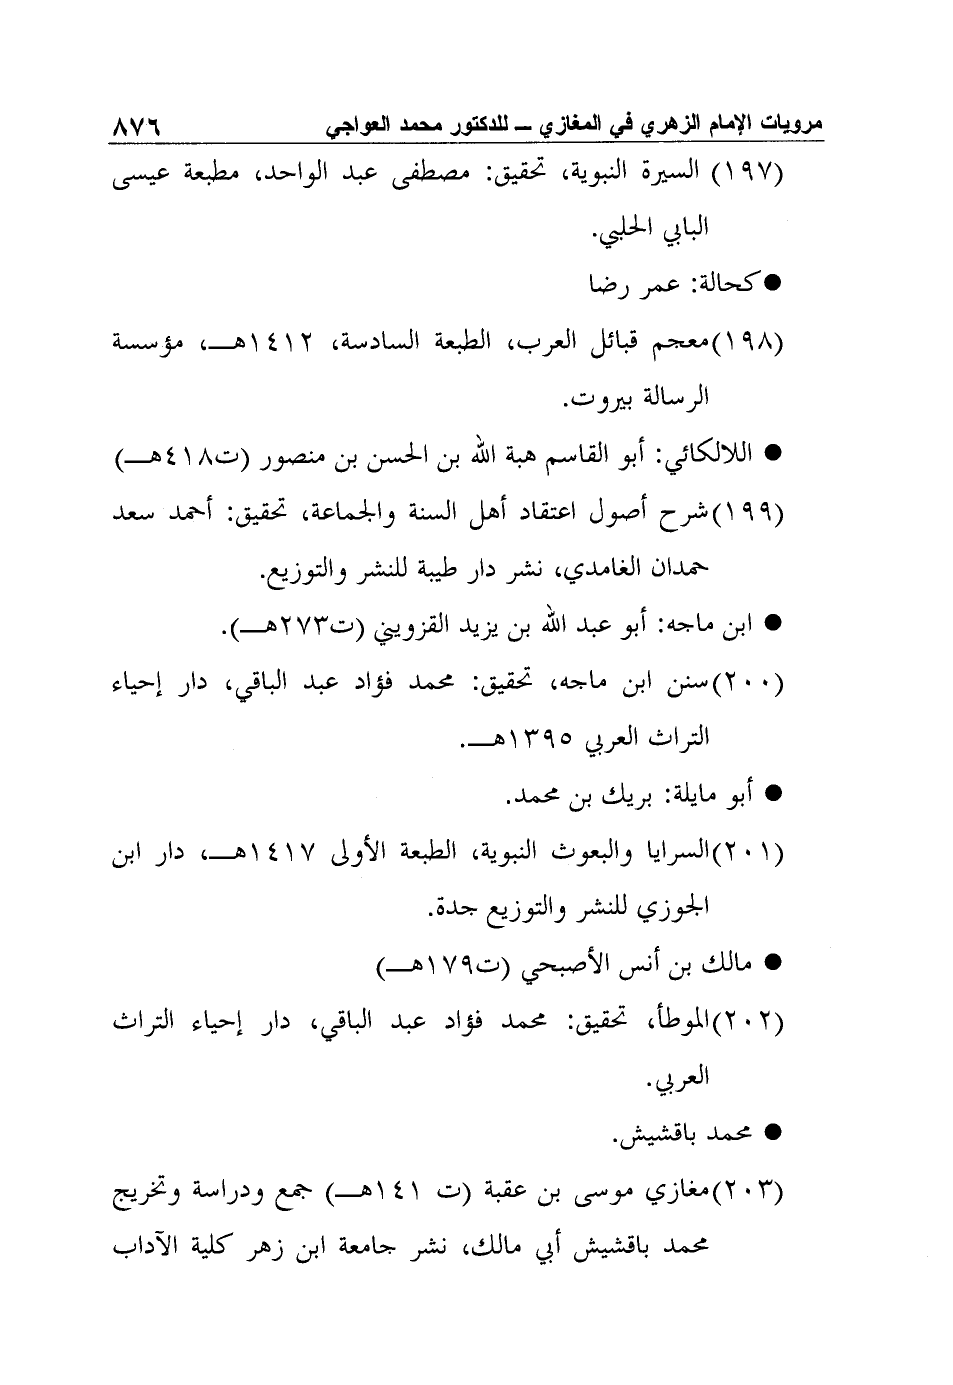 مرويات الإمام الزهري في المغازي ــ للدكتور محمد العواجي ٨٧٦
(١٩٧) السيرة النبوية، تحقيق: مصطفى عبد الواحد، مطبعة عيسى
البابي الحلبي.
● كحالة: عمر رضا
(١٩٨) معجم قبائل العرب، الطبعة السادسة، ١٤١٢هــ، مؤسسة
الرسالة بيروت.
● اللالكائي: أبو القاسم هبة الله بن الحسن بن منصور (ت٤١٨هــ)
(١٩٩) شرح أصول اعتقاد أهل السنة والجماعة، تحقيق: أحمد سعد
حمدان الغامدي، نشر دار طيبة للنشر والتوزيع.
● ابن ماجه: أبو عبد الله بن يزيد القزويني (ت٢٧٣هــ).
(٢٠٠) سنن ابن ماجه، تحقيق: محمد فؤاد عبد الباقي، دار إحياء
التراث العربي ١٣٩٥هــ.
● أبو مايلة: بريك بن محمد.
(٢٠١) السرايا والبعوث النبوية، الطبعة الأولى ١٤١٧هــ، دار ابن
الجوزي للنشر والتوزيع جدة.
● مالك بن أنس الأصبحي (ت١٧٩هــ)
(٢٠٢) الموطأ، تحقيق: محمد فؤاد عبد الباقي، دار إحياء التراث
العربي.
● محمد باقشيش.
(٢٠٣) مغازي موسى بن عقبة (ت ١٤١هــ) جمع ودراسة وتخريج
محمد باقشيش أبي مالك، نشر جامعة ابن زهر كلية الآداب